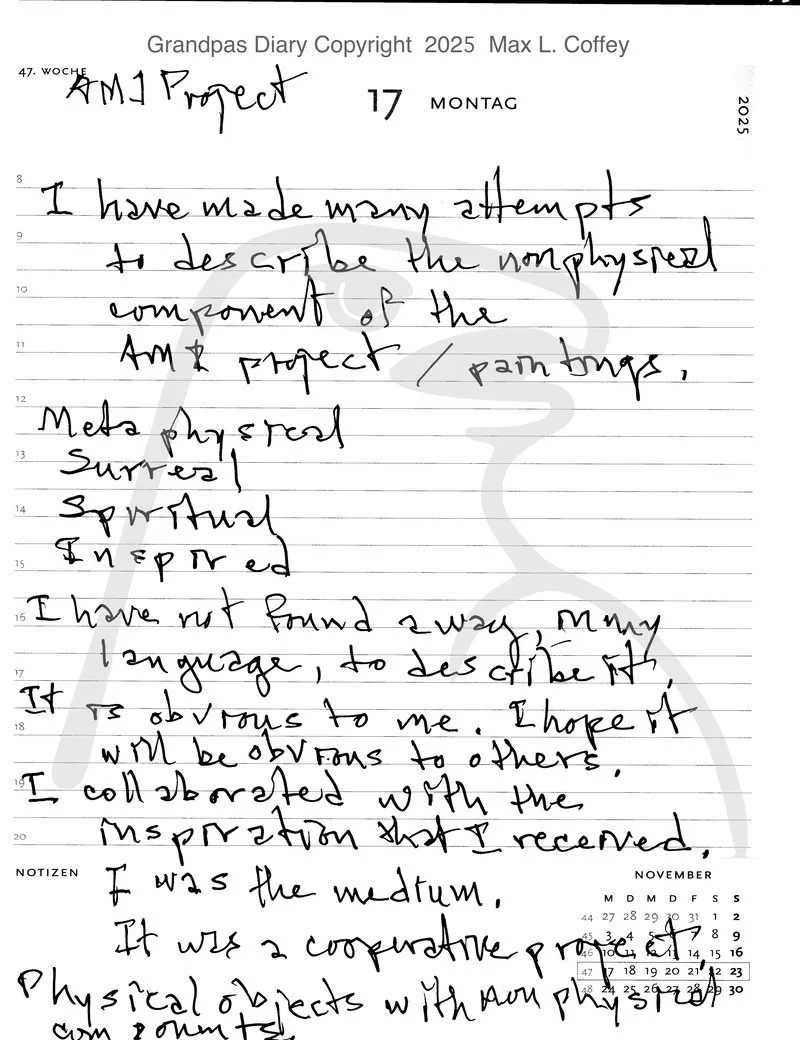 Grandpas Diary Copyright 2025 Max L. Coffey
47. WOCHE
AMI Project
17 MONTAG
2025
8
I have made many attempts
9
to describe the nonphysical
10
component of the
11
AMI project / paintings.
12
Metaphysical
13
Surreal
14
Spiritual
15
Inspired
16
I have not found a way, in my
17
language, to describe it.
It is obvious to me. I hope it
18
will be obvious to others.
19
I collaborated with the
20
inspiration that I received.
NOTIZEN
I was the medium.
It was a cooperative project.
Physical objects with non physical
components.
NOVEMBER
M D M D F S S
44 27 28 29 30 31 1 2
45 3 4 5 6 7 8 9
46 10 11 12 13 14 15 16
47 17 18 19 20 21 22 23
48 24 25 26 27 28 29 30